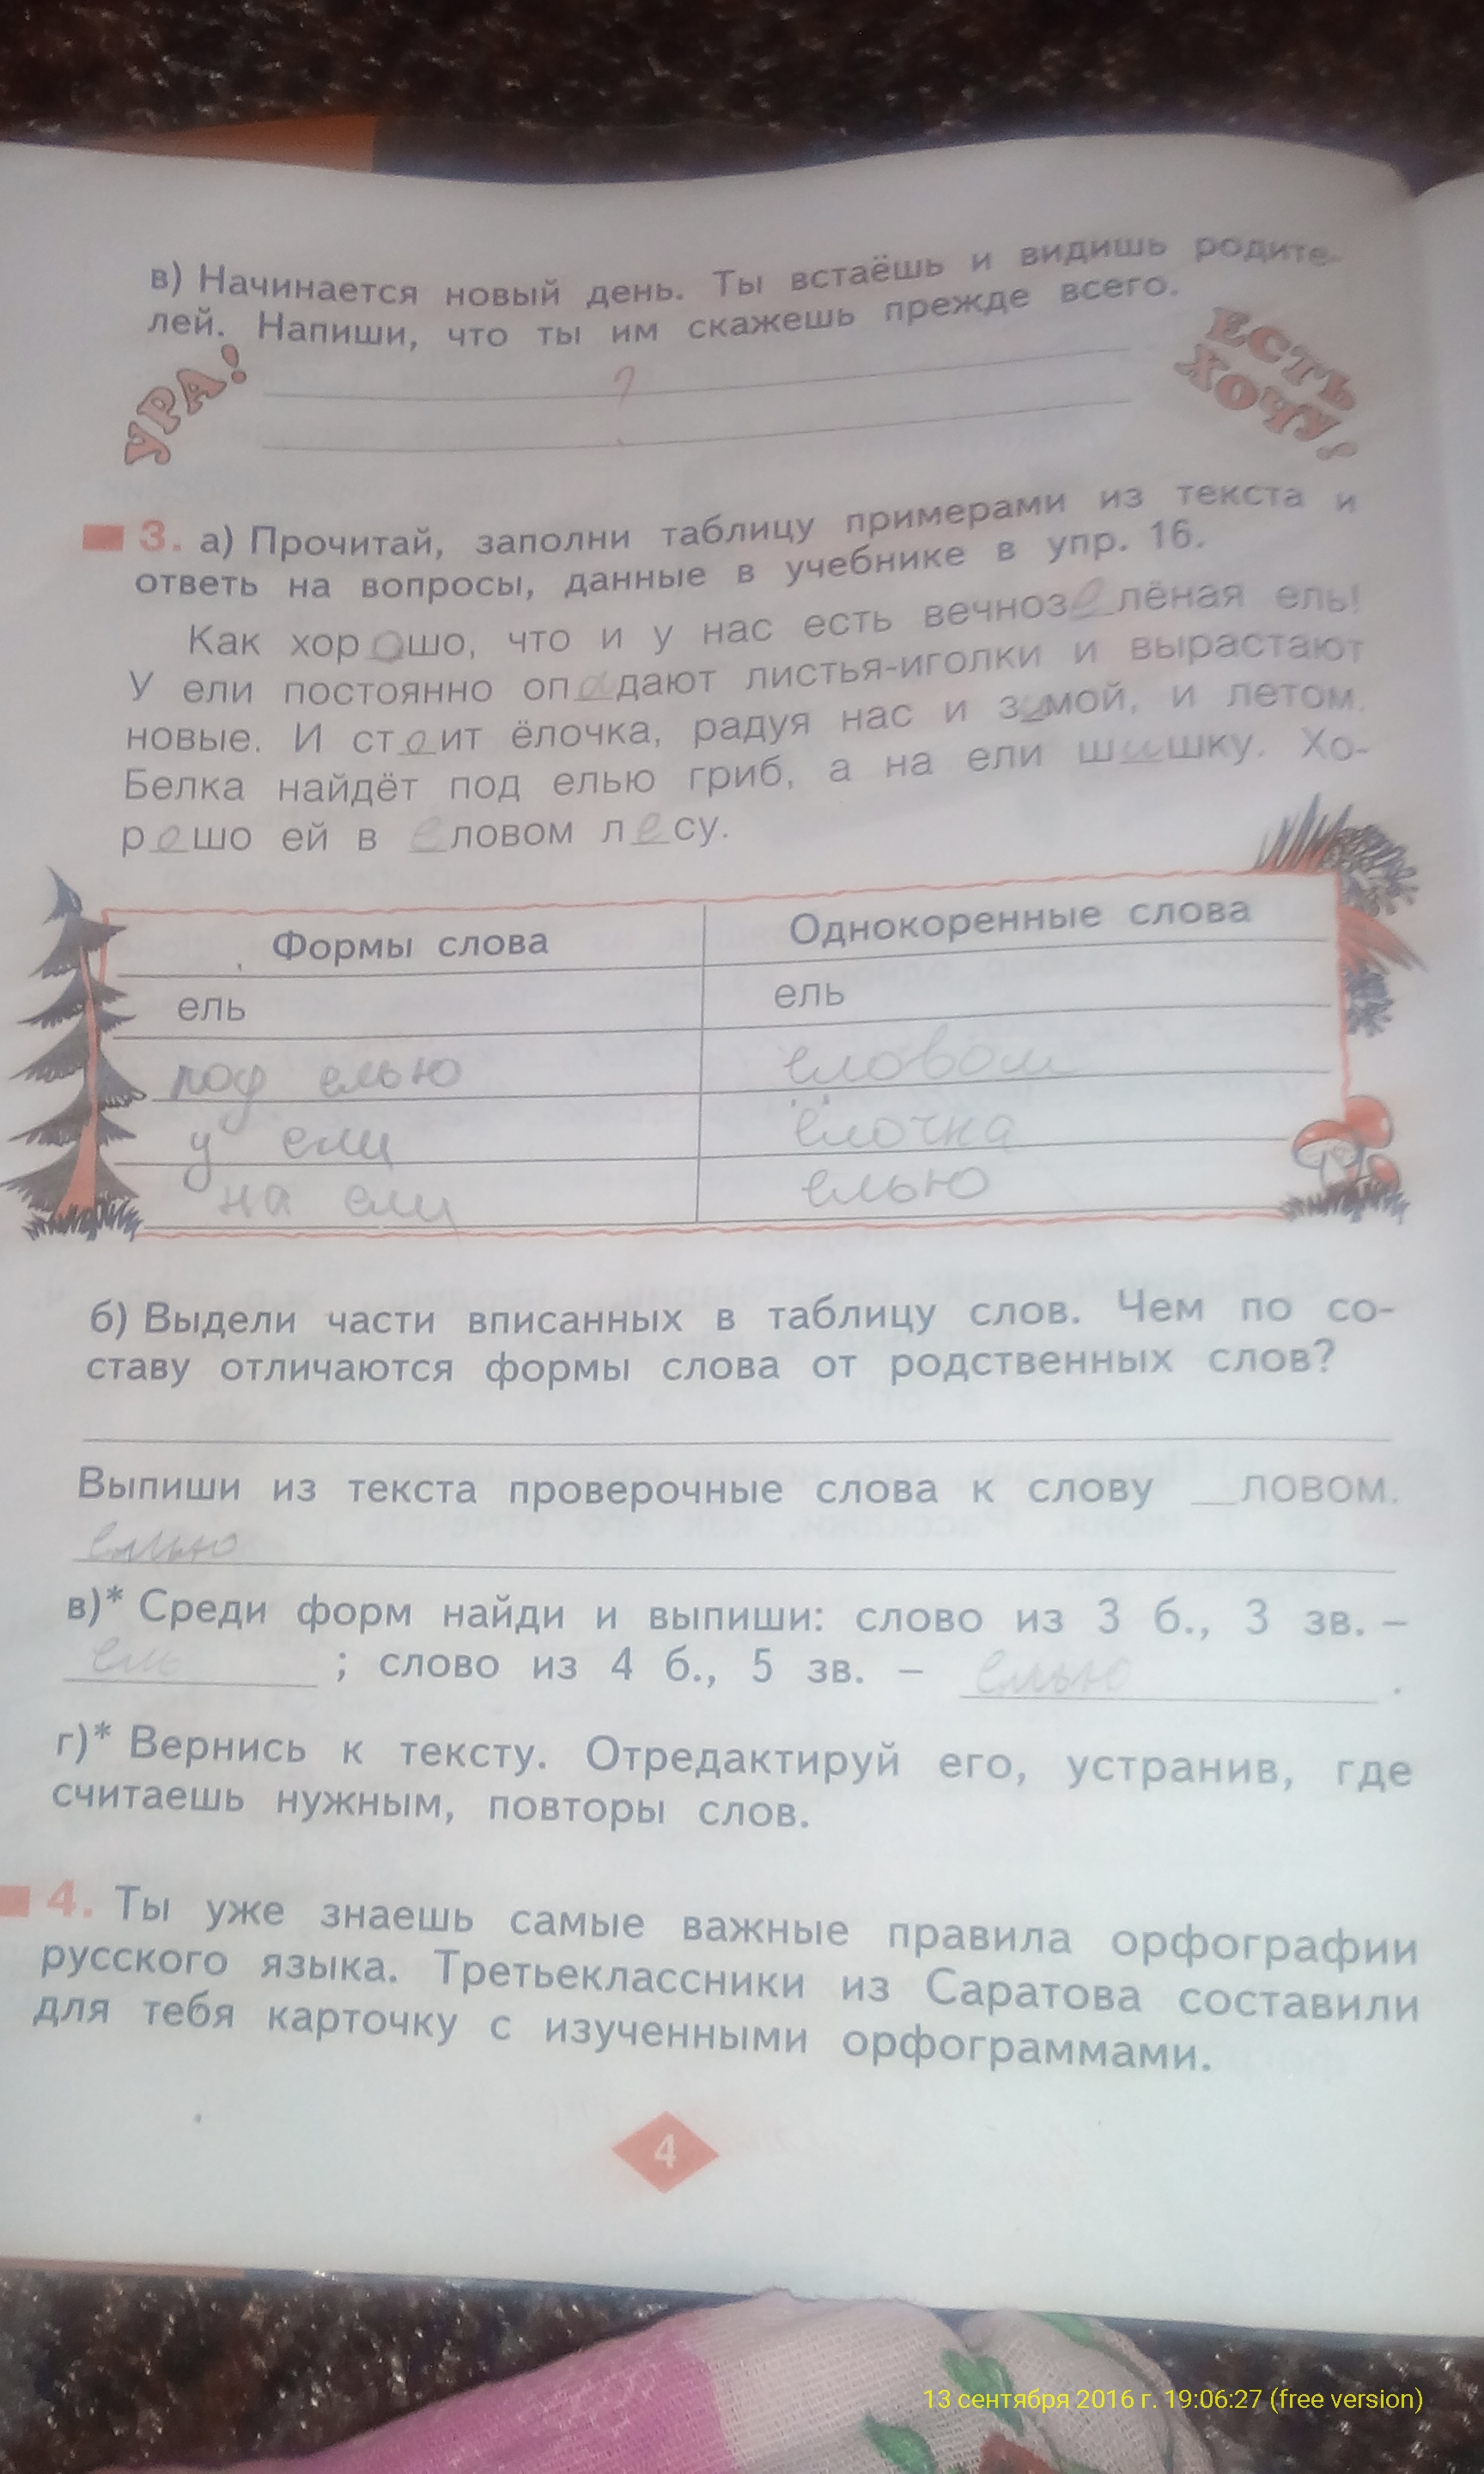 в) Начинается новый день. Ты встаёшь и видишь родите-
лей. Напиши, что ты им скажешь прежде всего.
УРА!
?
ЕСТЬ
ХОЧУ!
3. а) Прочитай, заполни таблицу примерами из текста и
ответь на вопросы, данные в учебнике в упр. 16.
Как хорошо, что и у нас есть вечнозелёная ель!
У ели постоянно опадают листья-иголки и вырастают
новые. И стоит ёлочка, радуя нас и зимой, и летом.
Белка найдёт под елью гриб, а на ели шишку. Хо-
рошо ей в еловом лесу.
Формы слова Однокоренные слова
ель ель
под елью еловом
у ели ёлочка
на ели елью
б) Выдели части вписанных в таблицу слов. Чем по со-
ставу отличаются формы слова от родственных слов?
Выпиши из текста проверочные слова к слову __ловом.
елью
в)* Среди форм найди и выпиши: слово из 3 б., 3 зв. –
ель ; слово из 4 б., 5 зв. – елью .
г)* Вернись к тексту. Отредактируй его, устранив, где
считаешь нужным, повторы слов.
4. Ты уже знаешь самые важные правила орфографии
русского языка. Третьеклассники из Саратова составили
для тебя карточку с изученными орфограммами.
4
13 сентября 2016 г. 19:06:27 (free version)